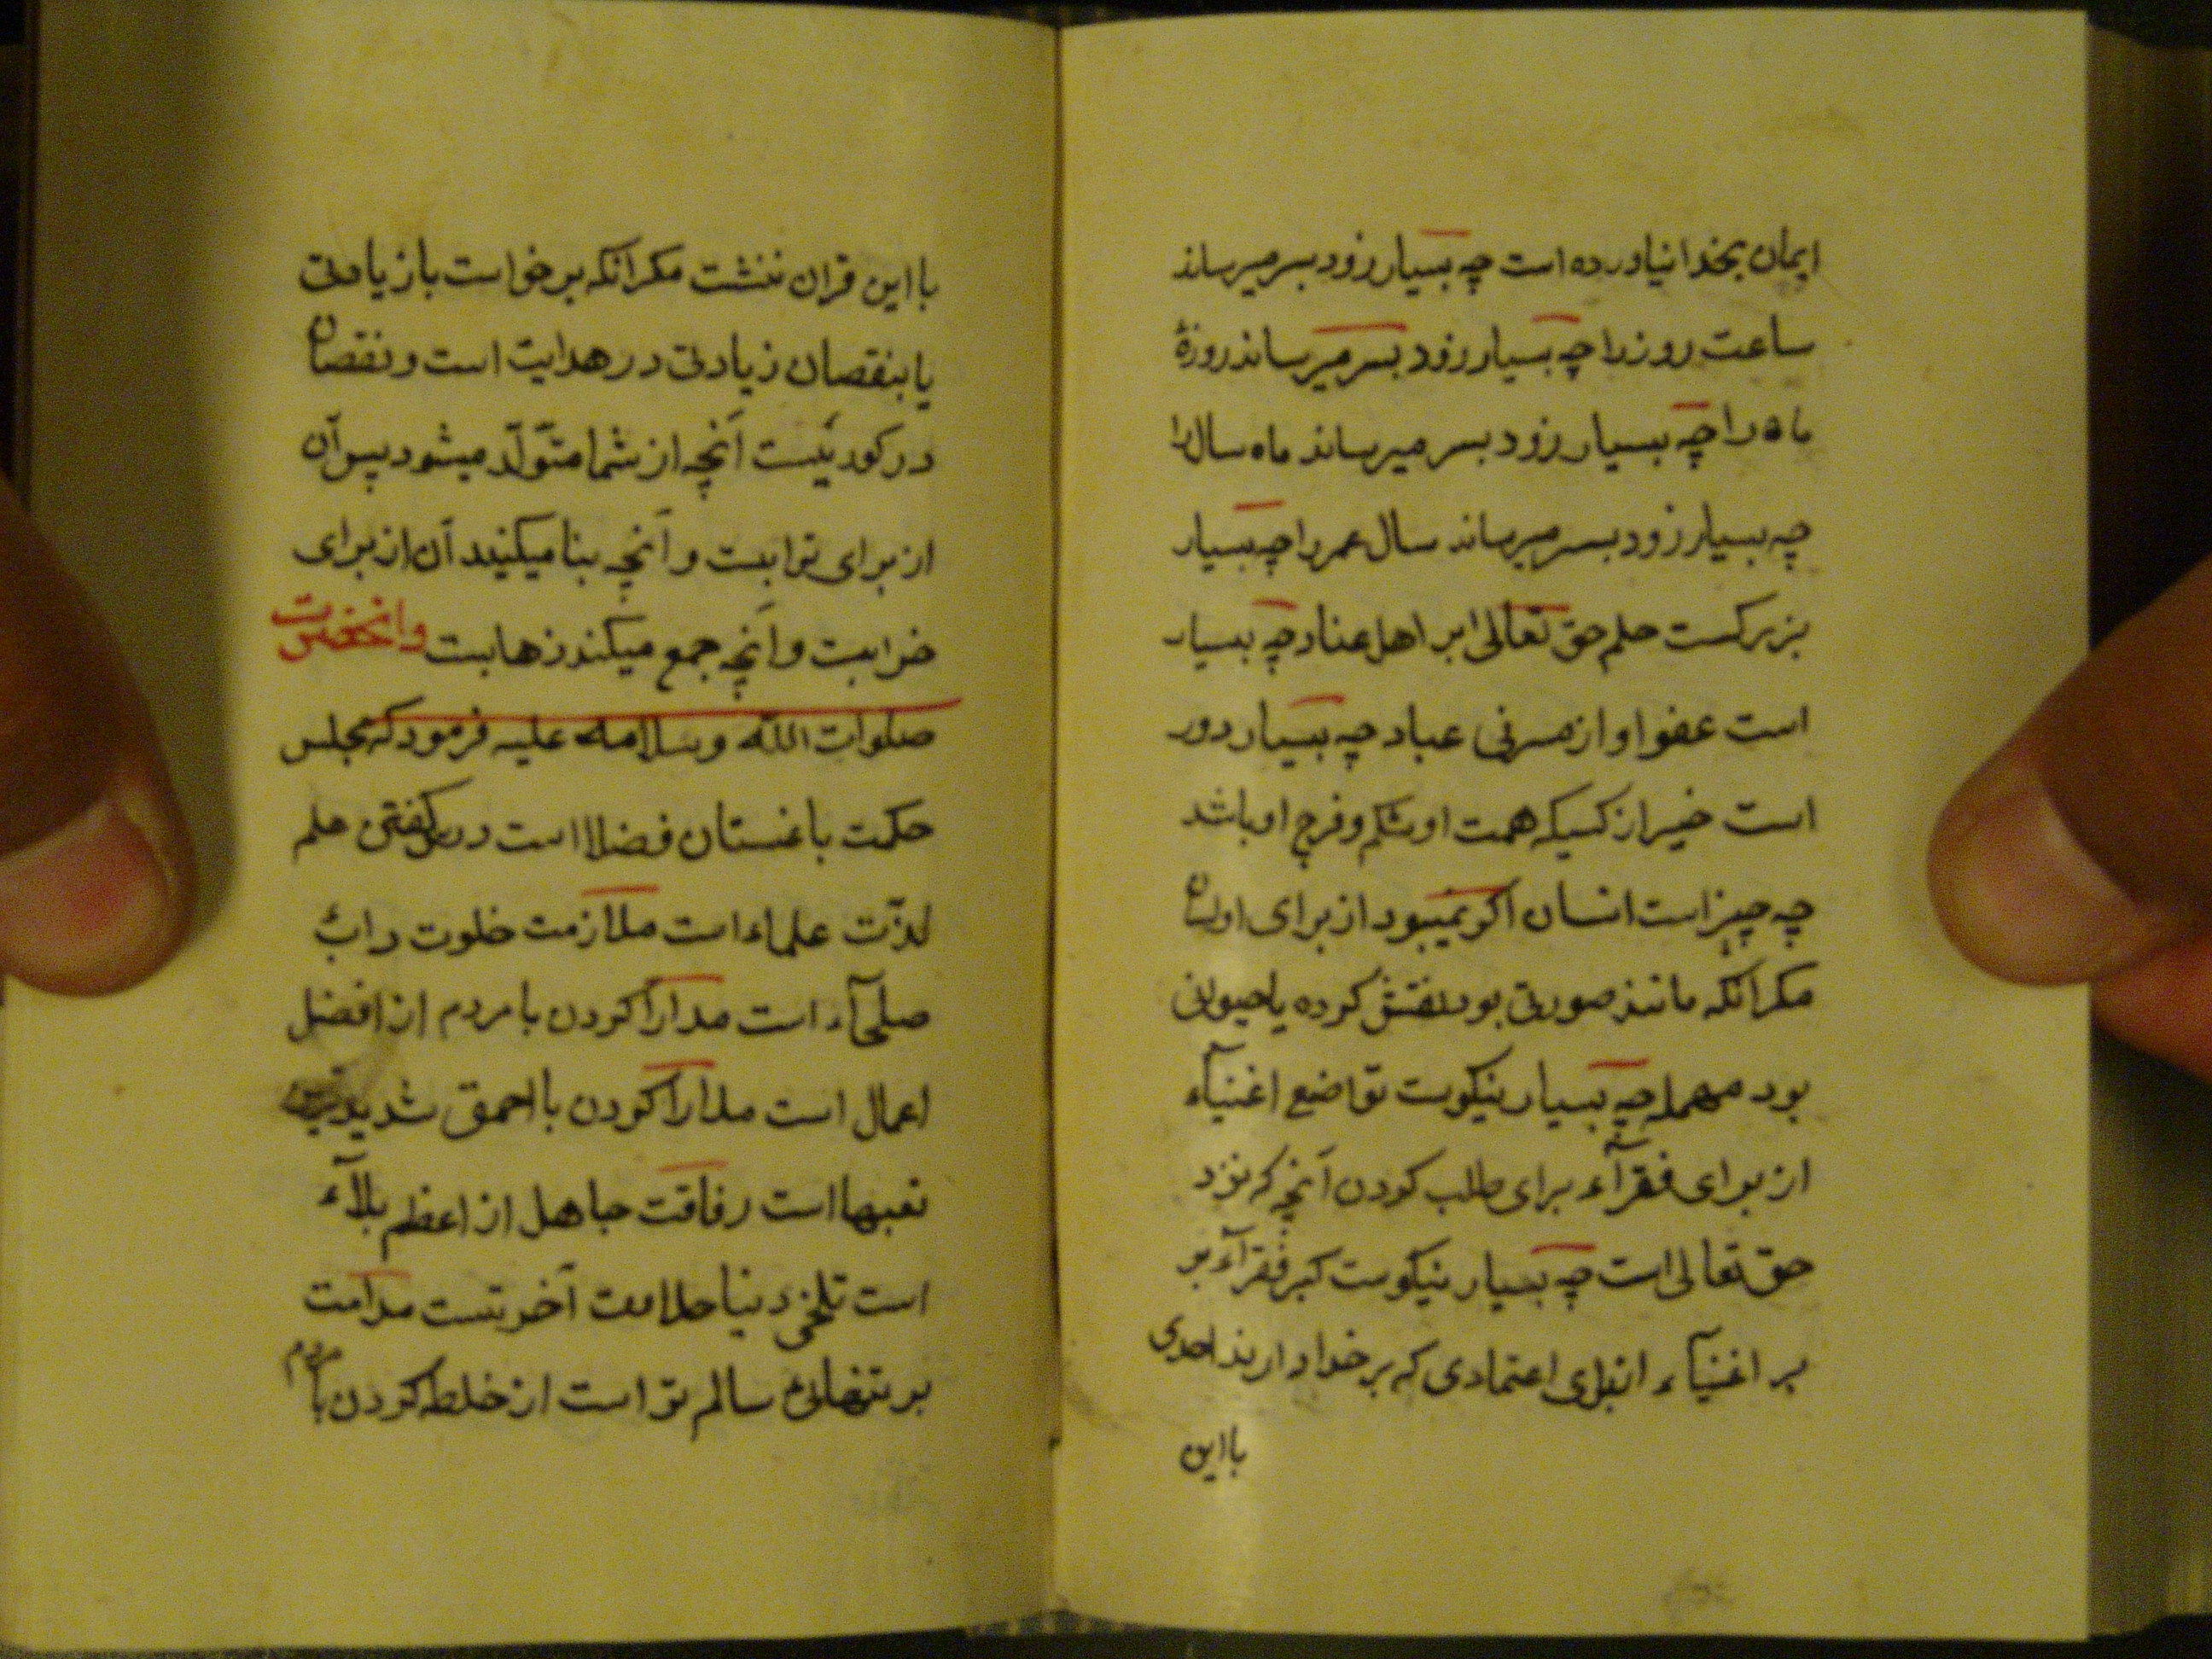 ایمان بخدا نیاورده است چه بسیار زود بسر میرساند
ساعت روز را چه بسیار زود بسر میرساند روزهٔ
ماه را چه بسیار زود بسر میرساند ماه سال را
چه بسیار زود بسر میرساند سال عمر را چه بسیار
بزرکست حلم حق تعالی بر اهل عناد چه بسیار
است عفو او از مسرفی عباد چه بسیار دور
است خیر از کسیکه همت او شکم و فرج او باشد
چه چیز است انسان اکر نمیبود از برای او لسان
مکر انکه مانند صورتی بود نقش کرده یا حیوانی
بود مهمله چه بسیار نیکوست تواضع اغنیآء
از برای فقرآء برای طلب کردن آنچه که نزد
حق تعالی است چه بسیار نیکوست کبر فقرآء بر
بر اغنیآء اعتمادی که بر خدا دارند احدی
با این
با این قران ننشت مکر انکه برخواست با زیادتی
یا بنقصان زیادتی در هدایت است و نقصان
در کوریست آنچه از شما متوّلّد میشود پس آن
از برای ترابست و آنچه بنا میکنید آن از برای
خرابست و آنچه جمع میکند زهابست وانحضرت
صلوات الله وسلامه علیه فرمود که مجلس
حکمت باغستان فضلا است درس کفتن علم
لذّت علماء است ملازمت خلوت
صلحآء است مدارا کردن با مردم از افضل
اعمال است مدارا کردن با احمق شدیدترین
تعبها است رفاقت جاهل از اعظم بلآء
است تلخی دنیا حلاوت آخرتست مدامت
بر تنهائی سالم تر است از خلطه کردن با مردم